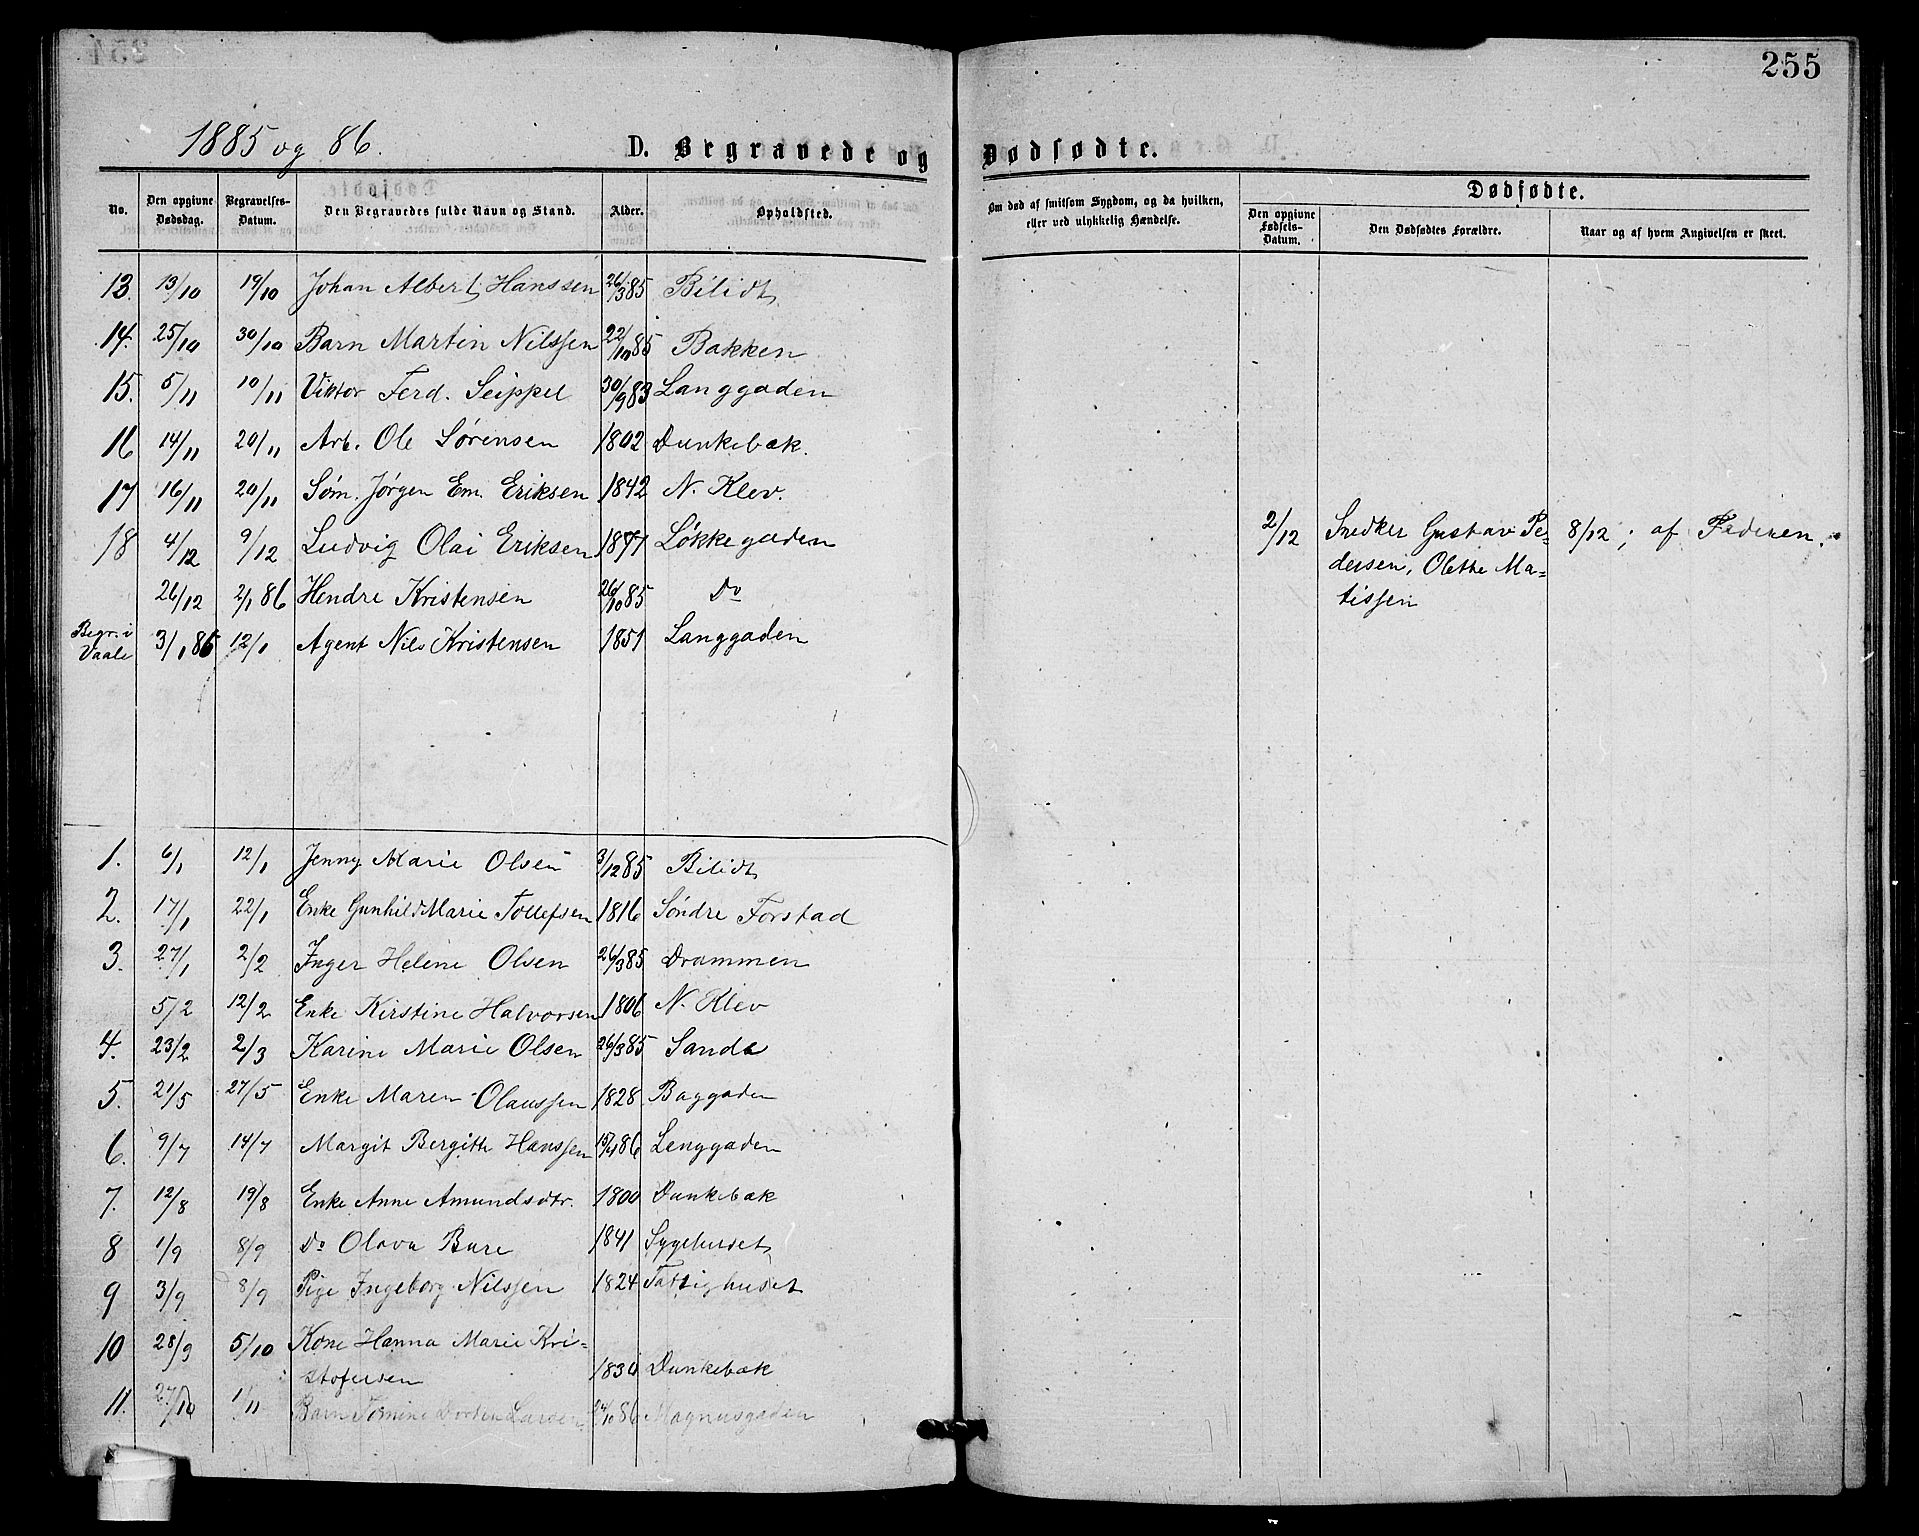 255
1885 og 86.
D. Begravede og Dødfødte.
No. Den opgivne Dødsdag. Begravelses-Datum. Den Begravedes fulde Navn og Stand. Alder. Opholdsted. Om død af smitsom Sygdom, og da hvilken, eller ved ulykkelig Hændelse. Dødfødte. Den opgivne Fødsels-Datum. Den Dødfødtes Forældre. Naar og af hvem Angivelsen er skeet.
13. 13/10 19/10 Johan Albert Hanssen 26/3 85 Bilidt
14. 25/10 30/10 Barn Martin Nilssen 22/10 85 Bakken
15. 5/11 10/11 Viktor Ferd. Seippel 30/9 83 Langgaden
16 14/11 20/11 Arb. Ole Sørensen 1802 Dunkebæk.
17 16/11 20/11 Søm. Jørgen Em. Eriksen 1842 N. Klev.
18 4/12 9/12 Ludvig Olai Eriksen 1877 Løkkegaden 2/12 Snedker Gustav Pe- 8/12; af Faderen.
dersen, Olette Ma-
tissen
26/12 2/1 86 Hendre Kristensen 26/10 85 Do
Begr. i Vaale 3/1 86 12/1 Agent Nils Kristensen 1851 Langgaden
1. 6/1 12/1 Jenny Marie Olsen 3/12 85 Bilidt
2. 17/1 22/1 Enke Gunhild Marie Tollefsen 1816 Søndre Forstad
3. 27/1 2/2 Inger Helene Olsen 26/3 85 Drammen
5/2 12/2 Enke Kirstine Halvorsen 1806 N. Klev
4. 23/2 2/3 Karine Marie Olsen 26/3 85 Sande
5. 21/5 27/5 Enke Maren Olaussen 1828 Baggaden
6. 9/7 14/7 Margit Bergitte Hanssen 15/4 86 Langgaden
7. 12/8 19/8 Enke Anne Amundsdtr. 1800 Dunkebæk
8 1/9 8/9 Do Olava Bure 1841 Sygehuset
9 3/9 8/9 Pige Ingeborg Nilssen 1824 Fattighuset
10 28/9 5/10 Kone Hanna Marie Kri-
stofersen 1830 Dunkebæk
11. 27/10 1/11 Barn Tomine Dortea Larsen 86 Magnusgaden